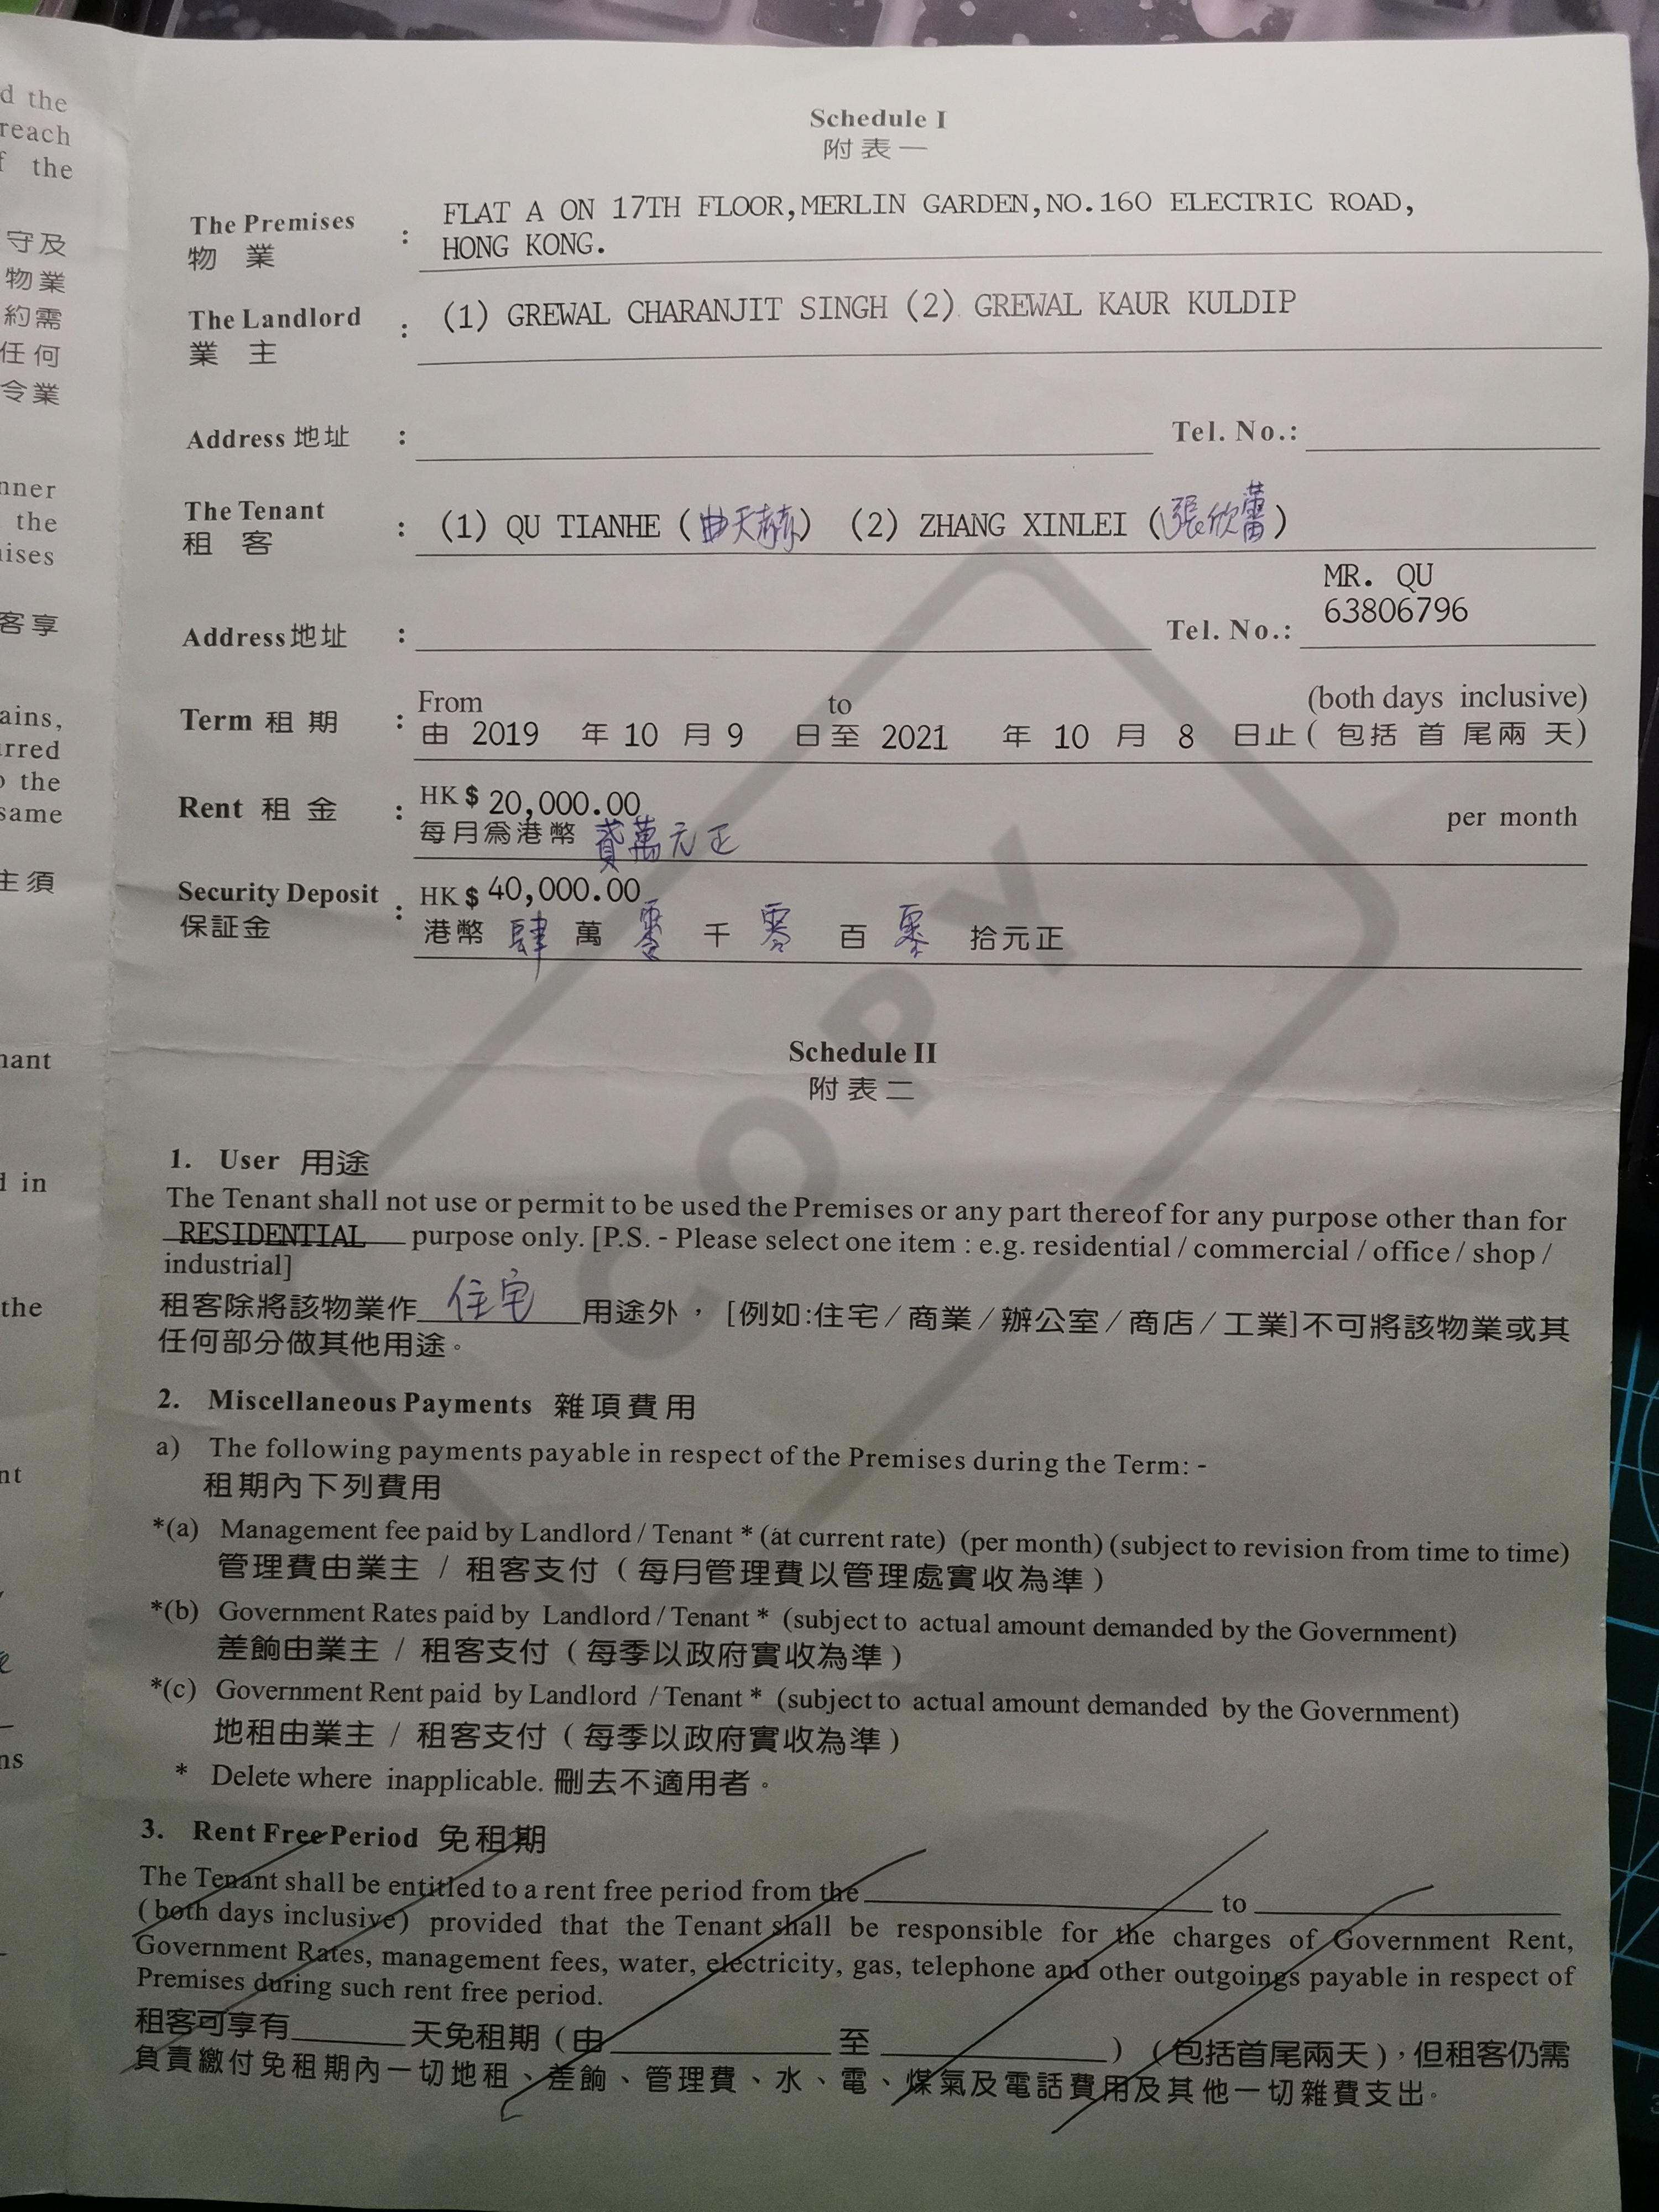 d the
reach
f the
守及
物業
約需
任何
令業
nner
the
ises
客享
ains,
rred
o the
same
主須
nant
d in
the
nt
ns
Schedule I
附表一
The Premises
物 業
:
FLAT A ON 17TH FLOOR,MERLIN GARDEN,NO.160 ELECTRIC ROAD,
HONG KONG.
The Landlord : (1) GREWAL CHARANJIT SINGH (2) GREWAL KAUR KULDIP
業 主
Address 地址 : Tel. No.:
The Tenant : (1) QU TIANHE (曲天赫) (2) ZHANG XINLEI (張欣蕾)
租 客
MR. QU
63806796
Address 地址 : Tel. No.:
From to (both days inclusive)
Term 租 期 : 由 2019 年 10 月 9 日至 2021 年 10 月 8 日止 ( 包括 首 尾兩 天)
Rent 租 金 : HK $ 20,000.00 per month
每月為港幣 貳萬元正
Security Deposit : HK $ 40,000.00
保証金 港幣 肆 萬 零 千 零 百 零 拾元正
COPY
Schedule II
附表二
1. User 用途
The Tenant shall not use or permit to be used the Premises or any part thereof for any purpose other than for
RESIDENTIAL purpose only. [P.S. - Please select one item : e.g. residential / commercial / office / shop /
industrial]
租客除將該物業作 住宅 用途外， [例如:住宅 / 商業 / 辦公室 / 商店 / 工業]不可將該物業或其
任何部分做其他用途。
2. Miscellaneous Payments 雜項費用
a) The following payments payable in respect of the Premises during the Term: -
租期內下列費用
*(a) Management fee paid by Landlord / Tenant * (at current rate) (per month) (subject to revision from time to time)
管理費由業主 / 租客支付 ( 每月管理費以管理處實收為準 )
*(b) Government Rates paid by Landlord / Tenant * (subject to actual amount demanded by the Government)
差餉由業主 / 租客支付 ( 每季以政府實收為準 )
*(c) Government Rent paid by Landlord / Tenant * (subject to actual amount demanded by the Government)
地租由業主 / 租客支付 ( 每季以政府實收為準 )
* Delete where inapplicable. 刪去不適用者。
3. Rent Free Period 免租期
The Tenant shall be entitled to a rent free period from the to
(both days inclusive) provided that the Tenant shall be responsible for the charges of Government Rent,
Government Rates, management fees, water, electricity, gas, telephone and other outgoings payable in respect of
Premises during such rent free period.
租客可享有 天免租期 (由 至 ) (包括首尾兩天)，但租客仍需
負責繳付免租期內一切地租、差餉、管理費、水、電、煤氣及電話費用及其他一切雜費支出。